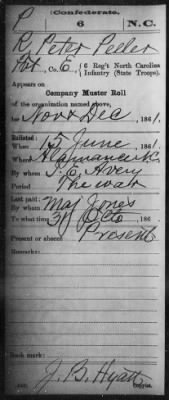 P
Confederate.
6
N.C.
R. Peter Peeler
Pvt, Co. E, 6 Reg't North Carolina
Infantry (State Troops).
Appears on
Company Muster Roll
of the organization named above,
for Nov & Dec, 1861.
Enlisted:
When 15 June, 1861.
Where Alamance C.
By whom I. E. Avery
Period The war
Last paid:
By whom Maj Jones
To what time 30 Octo, 186
Present or absent Present
Remarks:
Book mark:
J. B. Hyatt
Copyist.